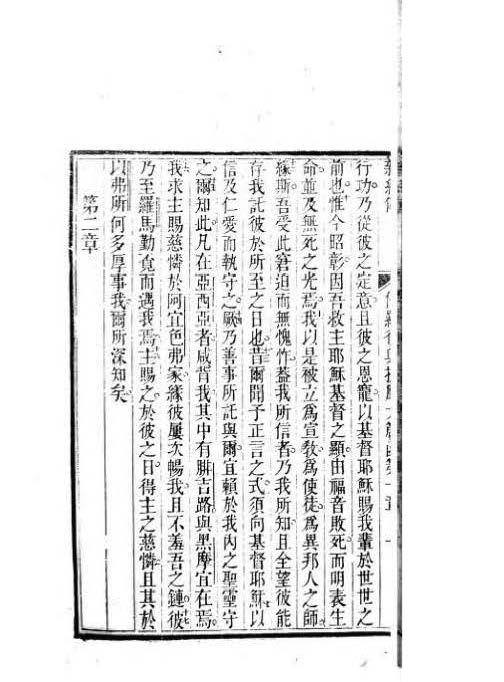 行功乃從彼之定意且彼之恩寵以基督耶穌賜我輩於世世之
前也惟今昭彰因吾救主耶穌基督之顯由福音敗死而明表生
命並及無死之光焉我以是被立爲宣教爲使徒爲異邦人之師
緣斯吾受此窘迫而無愧怍蓋我所信者乃我所知且全望彼能
存我託彼於所至之日也昔爾聞予正言之式須向基督耶穌以
信及仁愛而執守之厥乃善事所託與爾宜賴於我內之聖靈守
之爾知此凡在亞西亞者咸背我其中有腓吉路與黑摩宜在焉
我求主賜慈憐於阿宜色弗家緣彼屢次暢我且不羞吾之鏈彼
乃至羅馬勤覓而遇我焉主賜之於彼之日得主之慈憐且其於
以弗所何多厚事我爾所深知矣
第二章